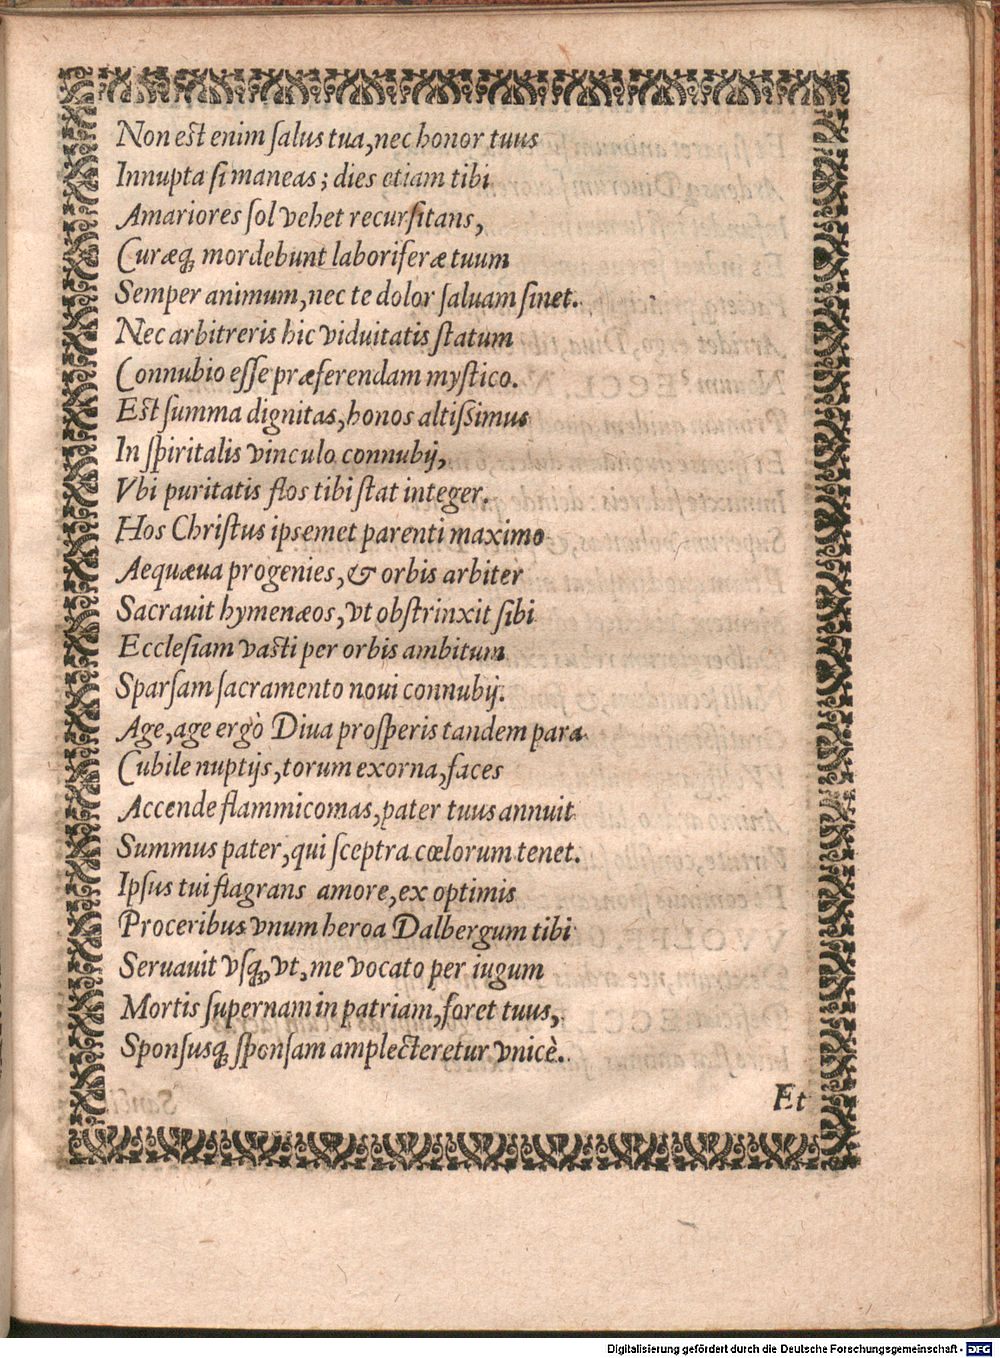 Non est enim ſalus tua, nec honor tuus
Innupta ſi maneas; dies etiam tibi
Amariores ſol vehet recurſitans,
Curæq́; mordebunt laboriferæ tuum
Semper animum, nec te dolor ſaluam ſinet.
Nec arbitreris hic viduitatis ſtatum
Connubio eſſe præferendam myſtico.
Est ſumma dignitas, honos altiſsimus
In ſpiritalis vinculo connubij,
Vbi puritatis flos tibi ſtat integer.
Hos Chriſtus ipsemet parenti maximo
Aequæua progenies, & orbis arbiter
Sacrauit hymenæos, vt obſtrinxit ſibi
Eccleſiam vasti per orbis ambitum
Sparſam ſacramento noui connubij.
Age, age ergò Diua proſperis tandem para
Cubile nuptijs, torum exorna, faces
Accende flammicomas, pater tuus annuit
Summus pater, qui ſceptra cœlorum tenet.
Ipſus tui flagrans amore, ex optimis
Proceribus vnum heroa Dalbergum tibi
Seruauit vſq́;, vt, me vocato per iugum
Mortis ſupernam in patriam, foret tuus,
Sponſusq́; ſponſam amplecteretur vnicè.
Et
Digitalisierung gefördert durch die Deutsche Forschungsgemeinschaft - DFG